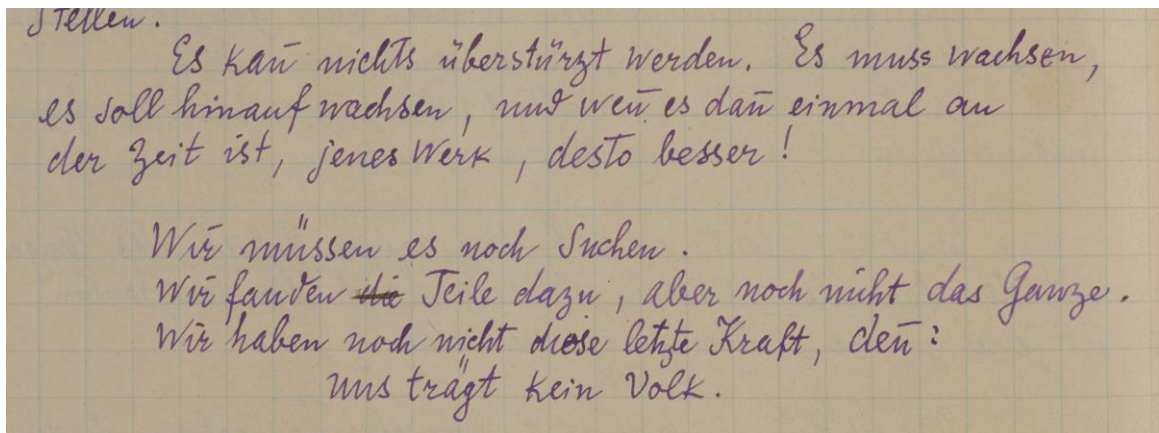 stellen.
Es kan̄ nichts überstürzt werden. Es muss wachsen,
es soll hinauf wachsen, und wen̄ es dan̄ einmal an
der Zeit ist, jenes Werk, desto besser!
Wir müssen es noch suchen.
Wir fanden die Teile dazu, aber noch nicht das Ganze.
Wir haben noch nicht diese letzte Kraft, den̄:
uns trägt kein Volk.